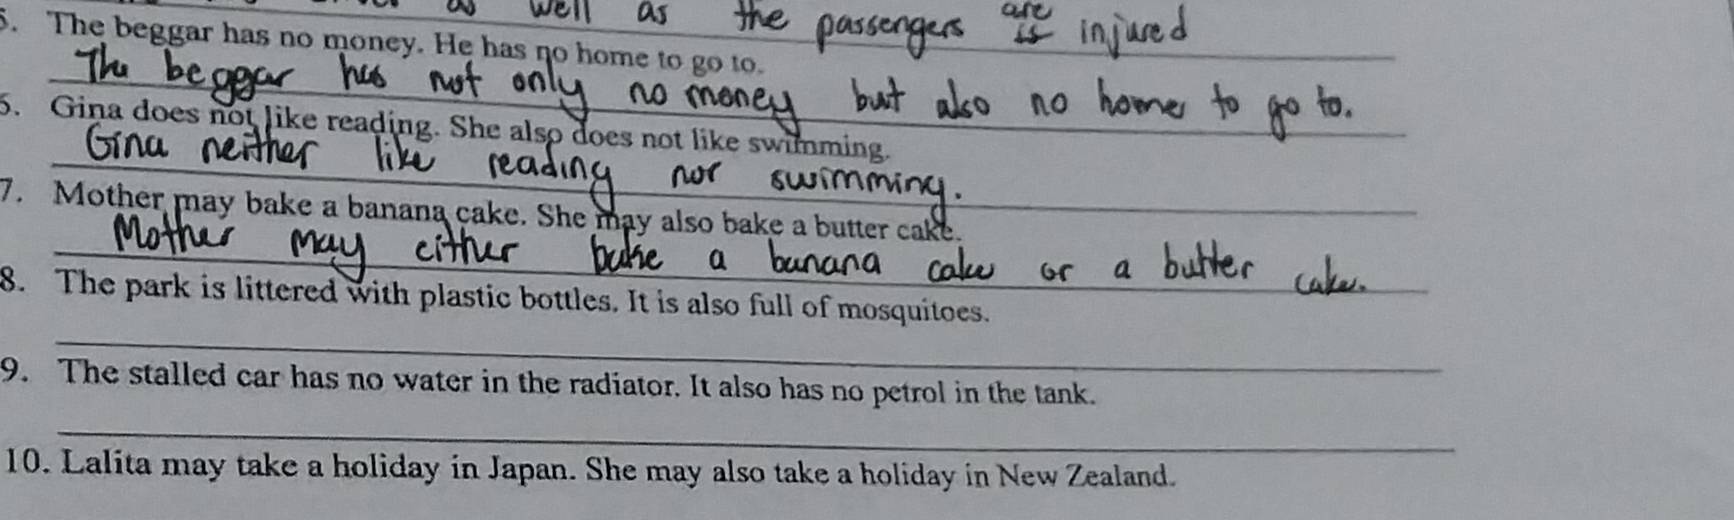 as well as the passengers are is injured
5. The beggar has no money. He has no home to go to.
The beggar has not only no money but also no home to go to.
6. Gina does not like reading. She also does not like swimming.
Gina neither like reading nor swimming.
7. Mother may bake a banana cake. She may also bake a butter cake.
Mother may either bake a banana cake or a butter cake.
8. The park is littered with plastic bottles. It is also full of mosquitoes.
9. The stalled car has no water in the radiator. It also has no petrol in the tank.
10. Lalita may take a holiday in Japan. She may also take a holiday in New Zealand.